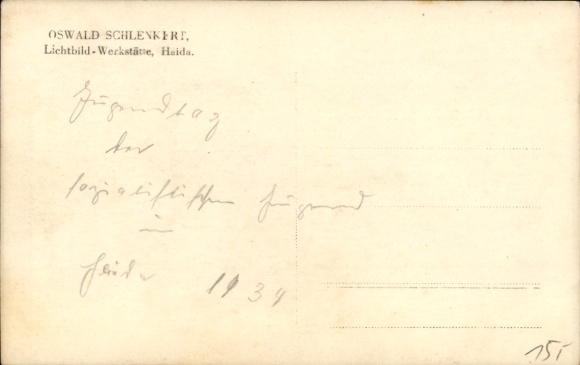 OSWALD SCHLENKERT,
Lichtbild-Werkstätte, Haida.
Jugendtag
der
sozialistischen Jugend
in
Haida 1934